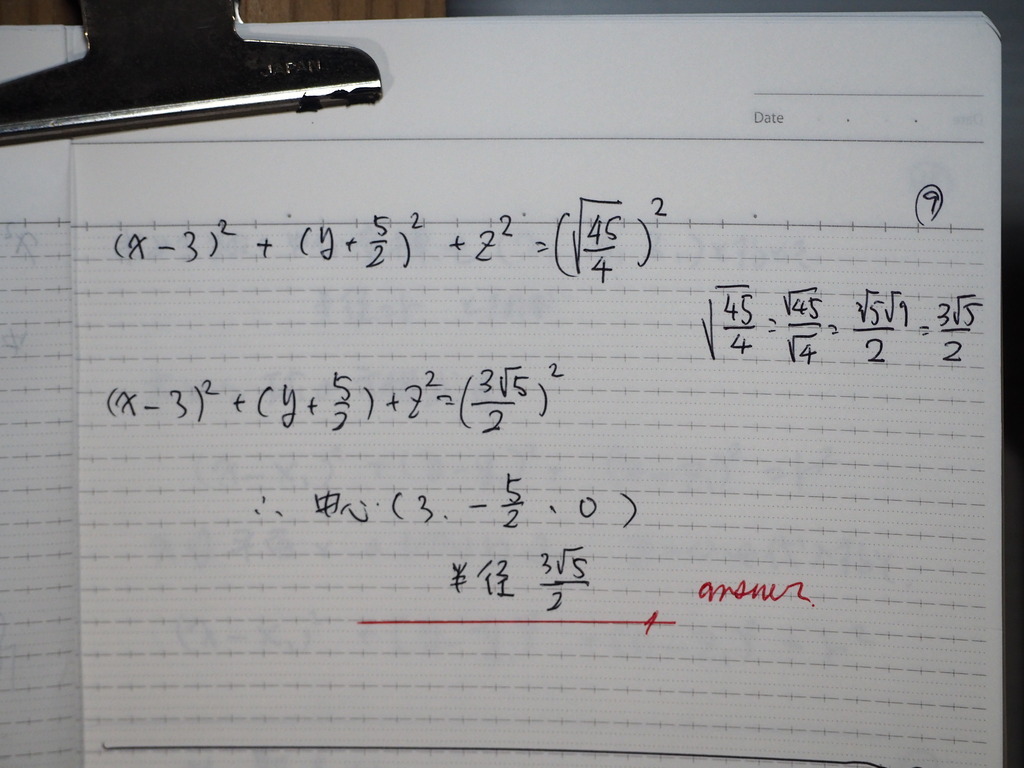 JAPAN
Date
⑨
(x - 3)² + (y + 5/2)² + z² = (√(45/4))²
√(45/4) = √45/√4 = √5√9/2 = 3√5/2
(x - 3)² + (y + 5/2) + z² = (3√5/2)²
∴ 中心 (3、 - 5/2 、 0 )
半径 3√5/2
answer